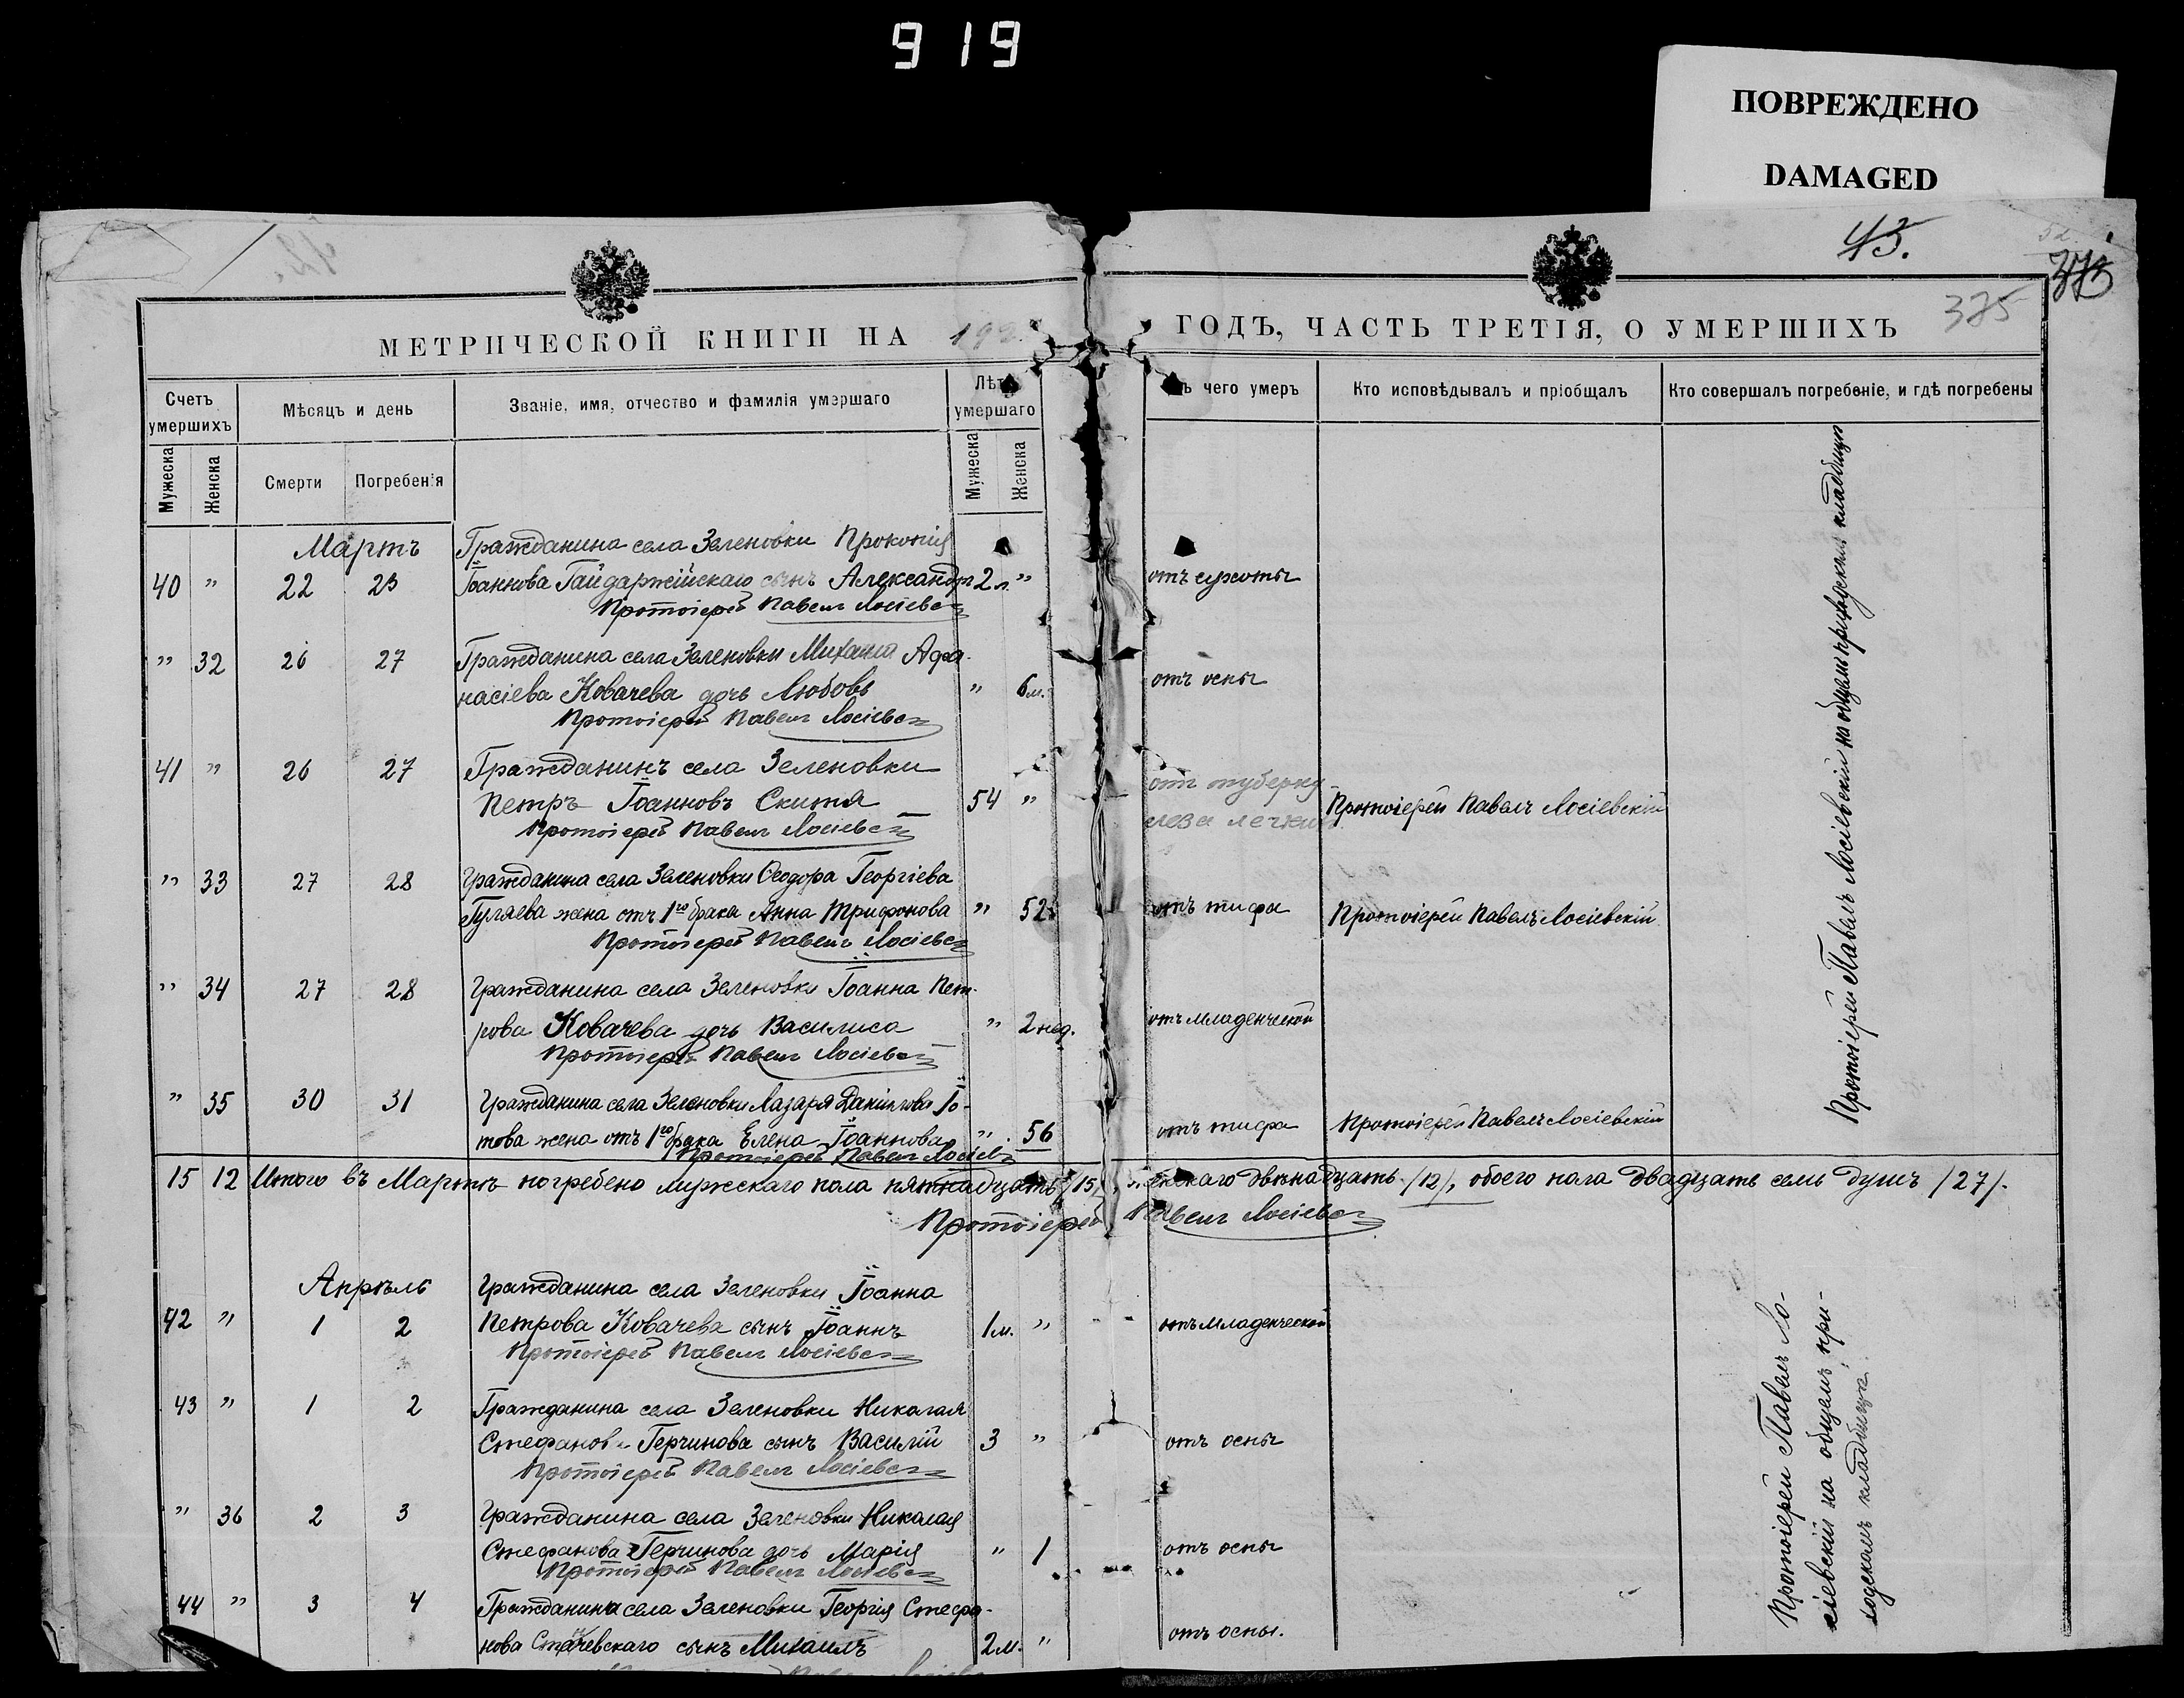 919
ПОВРЕЖДЕНО
DAMAGED
43.
375
МЕТРИЧЕСКОЙ КНИГИ НА 192 ГОДЪ, ЧАСТЬ ТРЕТІЯ, О УМЕРШИХЪ
Счетъ умершихъ
Мѣсяцъ и день
Званіе, имя, отчество и фамилія умэршаго
Лѣта умершаго
чего умеръ
Кто исповѣдывалъ и пріобщалъ
Кто совершалъ погребеніе, и гдѣ погребены
Мужеска
Женска
Смерти
Погребенія
Мужеска
Женска
Мартъ Гражданина села Зеленовки Прокопія
40 " 22 23 Іоаннова Гайдаржійскаго сынъ Александръ 2 л. " отъ сухоты
Протоіерей Павелъ Лосіевскій
" 32 26 27 Гражданина села Зеленовки Михаила Афа-
насіева Ковачева дочь Любовь " 6 м. отъ оспы
Протоіерей Павелъ Лосіевскій
41 " 26 27 Гражданинъ села Зеленовки
Петръ Іоанновъ Скитя 54 " отъ туберку
леза легких Протоіерей Павелъ Лосіевскій
Протоіерей Павелъ Лосіевскій
" 33 27 28 Гражданина села Зеленовки Ѳеодора Георгіева
Гуляева жена отъ 1го брака Анна Трифонова " 52 отъ тифа Протоіерей Павелъ Лосіевскій
Протоіерей Павелъ Лосіевскій
" 34 27 28 Гражданина села Зеленовки Іоанна Пет-
рова Ковачева дочь Василиса " 2 нед. отъ младенческой
Протоіерей Павелъ Лосіевскій
" 35 30 31 Гражданина села Зеленовки Лазаря Даніилова То-
това жена отъ 1го брака Елена Іоаннова " 56 отъ тифа Протоіерей Павелъ Лосіевскій
Протоіерей Павелъ Лосіевскій
Протоіерей Павелъ Лосіевскій на общемъ приходскомъ кладбищѣ
15 12 Итого въ Мартѣ погребено мужескаго пола пятнадцать /15/, женскаго двѣнадцать /12/, обоего пола двадцать семь душъ /27/.
Протоіерей Павелъ Лосіевскій
Апрѣль Гражданина села Зеленовки Іоанна
42 " 1 2 Петрова Ковачева сынъ Іоаннъ 1 м. " отъ младенческой
Протоіерей Павелъ Лосіевскій
43 " 1 2 Гражданина села Зеленовки Николая
Стефанова Герчинова сынъ Василій 3 " отъ оспы
Протоіерей Павелъ Лосіевскій
" 36 2 3 Гражданина села Зеленовки Николая
Стефанова Герчинова дочь Марія " 1 отъ оспы
Протоіерей Павелъ Лосіевскій
44 " 3 4 Гражданина села Зеленовки Георгія Стефа-
нова сынъ Михаилъ 2 м. " отъ оспы.
Протоіерей Павелъ Ло-
сіевскій на общемъ при-
ходскомъ кладбищѣ.